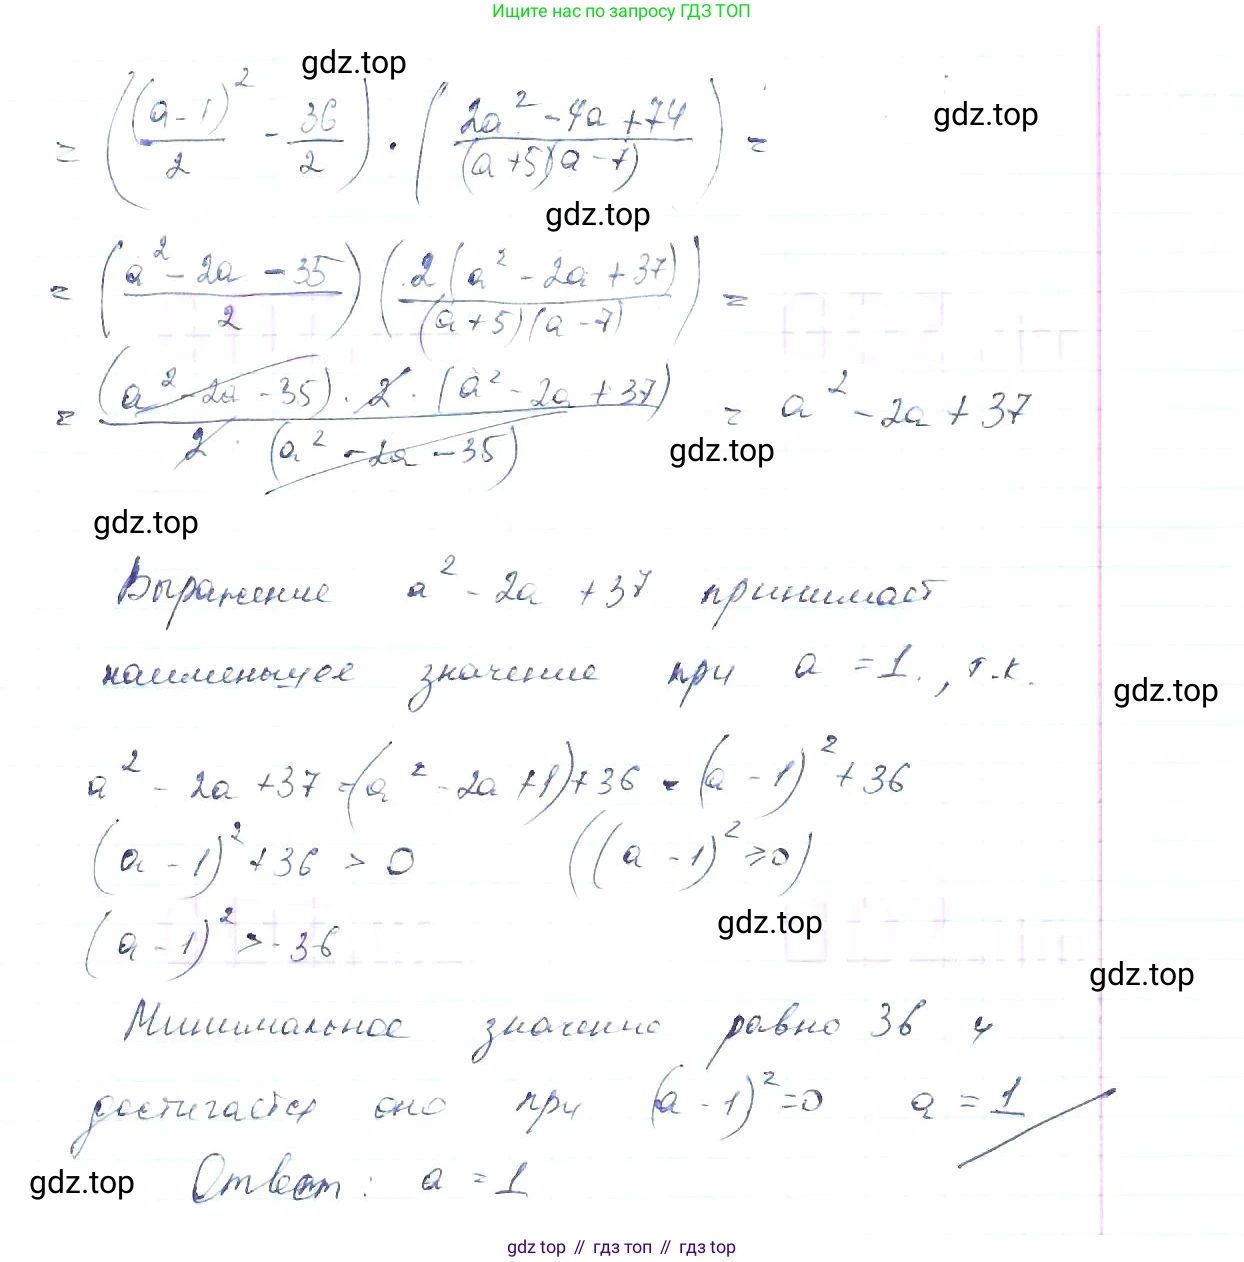 Ищите нас по запросу ГДЗ ТОП
gdz.top
= ((a-1)²/2 - 36/2) · ((2a² - 4a + 74)/((a+5)(a-7))) =
gdz.top
gdz.top
= ((a² - 2a - 35)/2) (2(a² - 2a + 37)/((a+5)(a-7))) =
= ((a² - 2a - 35) · 2 · (a² - 2a + 37))/(2 · (a² - 2a - 35)) = a² - 2a + 37
gdz.top
gdz.top
Выражение a² - 2a + 37 принимает
наименьшее значение при a = 1., т.к.
gdz.top
a² - 2a + 37 = (a² - 2a + 1) + 36 = (a - 1)² + 36
(a - 1)² + 36 > 0 ((a - 1)² ⩾ 0)
gdz.top
(a - 1)² > - 36
gdz.top
Минимальное значение равно 36 и
достигается оно при (a - 1)² = 0 a = 1
gdz.top
Ответ: a = 1
gdz top // гдз топ // гдз top